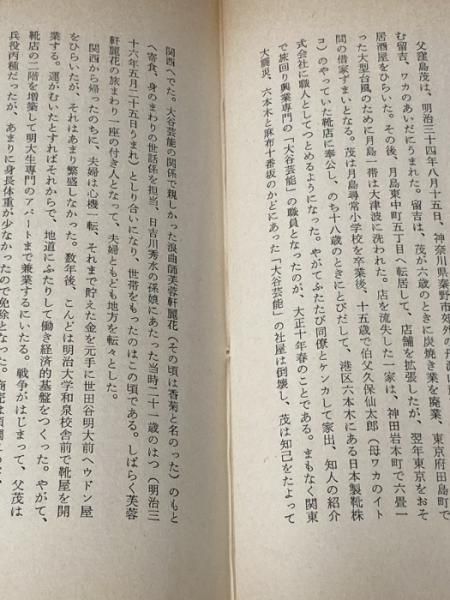 父窪島茂は、明治三十四年八月十五日、神奈川県秦野市郊外の丹
む留吉、ワカのあいだにうまれた。留吉は、茂が六歳のときに炭焼き業を廃業、東京府田島町で
居酒屋をひらいた。その後、月島東仲町五丁目へ転居して、店舗を拡張したが、翌年東京をおそ
った大型台風のために月島一帯は大津波に洗われた。店を流失した一家は、神田岩本町で六畳一
間の借家ずまいとなる。茂は月島尋常小学校を卒業後、十五歳で伯父久保仙太郎（母ワカのイト
コ）のやっていた靴店に奉公し、のち十八歳のときにとびだして、港区六本木にある日本製靴株
式会社に職人としてつとめるようになった。やがてふたたび同僚とケンカして家出、知人の紹介
で旅回り興業専門の「大谷芸能」の職員となったのが、大正十年春のことである。まもなく関東
大震災、六本木と麻布十番坂のかどにあった「大谷芸能」の社屋は倒壊し、茂は知己をたよって
関西へでた。大谷芸能の関係で親しかった浪曲師芙蓉軒麗花（その頃は香菊と名のった）のもと
へ寄食、身のまわりの世話係を担当、日吉川秀水の孫娘にあたった当時二十一歳のはつ（明治三
十六年五月二十五日うまれ）としり合いになり、世帯をもったのはこの頃である。しばらく芙蓉
軒麗花の旅まわり一座の付き人となって、夫婦ともども地方を転々とした。
関西から帰ったのちに、夫婦は心機一転、それまで貯えた金を元手に世田谷明大前へウドン屋
をひらいたが、それはあまり繁盛しなかった。数年後、こんどは明治大学和泉校舎前で靴屋を開
業する。運がむいたとすればそれからで、地道にふたりして働き経済的基盤をつくった。やがて、
靴店の二階を増築して明大生専門のアパートまで兼業するにいたる。戦争がはじまって、父茂は
兵役丙種だったが、あまりに身長体重が少なかったので免除となった。